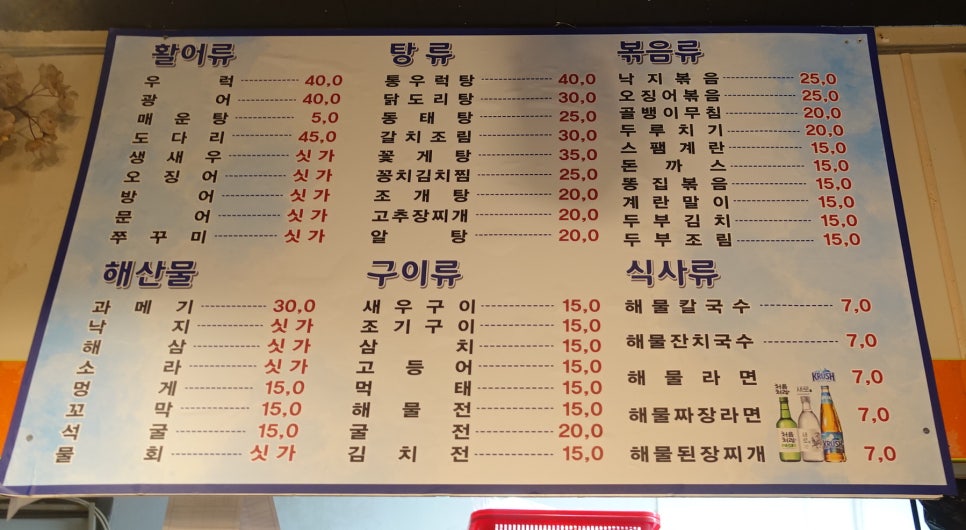 활어류
우럭 40,0
광어 40,0
매운탕 5,0
도다리 45,0
생새우 싯가
오징어 싯가
방어 싯가
문어 싯가
쭈꾸미 싯가
탕류
통우럭탕 40,0
닭도리탕 30,0
동태탕 25,0
갈치조림 30,0
꽃게탕 35,0
꽁치김치찜 25,0
조개탕 20,0
고추장찌개 20,0
알탕 20,0
볶음류
낙지볶음 25,0
오징어볶음 25,0
골뱅이무침 20,0
두루치기 20,0
스팸계란 15,0
돈까스 15,0
똥집볶음 15,0
계란말이 15,0
두부김치 15,0
두부조림 15,0
해산물
과메기 30,0
낙지 싯가
해삼 싯가
소라 싯가
멍게 15,0
꼬막 15,0
석굴 15,0
물회 싯가
구이류
새우구이 15,0
조기구이 15,0
삼치 15,0
고등어 15,0
먹태 15,0
해물전 15,0
굴전 20,0
김치전 15,0
식사류
해물칼국수 7,0
해물잔치국수 7,0
해물라면 7,0
해물짜장라면 7,0
해물된장찌개 7,0
KRUSH
처음처럼
새로
처음처럼
KRUSH